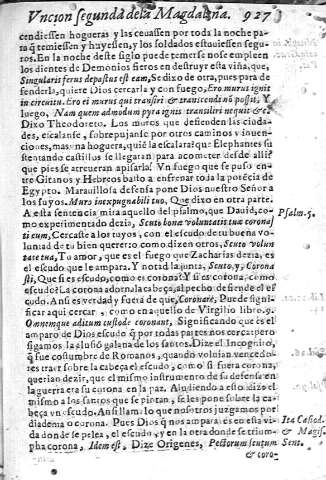 Uncion segunda de la Magdalena. 927
cendiessen hogueras y las ceuassen por toda la noche pa-
ra q̃ temiessen y huyessen, y los soldados estauiessen segu-
ros. En la noche deste siglo puede temerse no se empleen
los dientes de Demonios fieros en destruyr esta viña, que,
Singularis ferus depastus est eam, Se dizo de otra, pues para de
fenderla, quiere Dios cercarla y con fuego, Ero murus ignit
in circuitu. Ero ei murus qui transiri & transcendi nõ possit, Y
luego, Nam quem admodum pyra ignis transiliri nequit &c.
Dixo Theodoreto. Los muros que defienden las ciuda-
des, escalanse, sobrepujanse por otros caminos y inuen-
ciones, mas vna hoguera, quiẽ la escalara? que Elephantes su
stentando castillos se llegaran para acometer desde alli?
que pies se atreueran a pisarlo? Vn fuego que se puso en-
tre Gitanos y Hebreos basto a enfrenar toda la potẽcia de
Egypto. Marauillosa defensa pone Dios nuestro Señor a
los suyos. Muro inexpugnabili tuo, Que dixo en otra parte.
A esta sentencia mira aquello del psalmo, que Dauid, co-
mo experimentado dezia, Scuto bonæ voluntatis tuæ coronas
ti eum, Cercaste a los tuyos, con el escudo de tu buena vo-
luntad de tu bien querer: o como dizen otros, Scuto volun
tate tua, Tu amor, que es el fuego que Zacharias dezia, es
el escudo que le ampara. Y notad la junta, Scuto, y, Corona
sti, Que si es escudo, como es corona? Y si es corona, como
escudo? La corona adorna la cabeça, al pecho defiende el es
cudo. Ansi es verdad y fuera de que, Coronare, Puede signi-
ficar aqui cercar, como en aquello de Virgilio libro. 9.
Omnemque aditum custode coronant, Significando que es el
amparo de Dios escudo q̃ por todas partes nos cerca: pero
sigamos la alusiõ galana de los santos. Dize el Incognito,
q̃ fue costumbre de Romanos, quando voluian vencedo-
res traer sobre la cabeça el escudo, como si fuera corona,
querian dezir, que el mismo instrumento de su defensa en
la guerra era su corona en la paz. Aludiendo a esto dize el
mismo a los santos que se pintan, se les pone sobre la ca-
beça vn escudo. Ansi llamã lo que nosotros juzgamos por
diadema o corona. Pues Dios q̃ nos ampara es en esta vi-
da donde se pelea, el escudo, y en la otra donde se triun-
pha corona, Idem est. Dize Origenes, Pectorum scutum
& coro-
Psalm. 5.
Ita Casiod.
& Magis.
Sent.